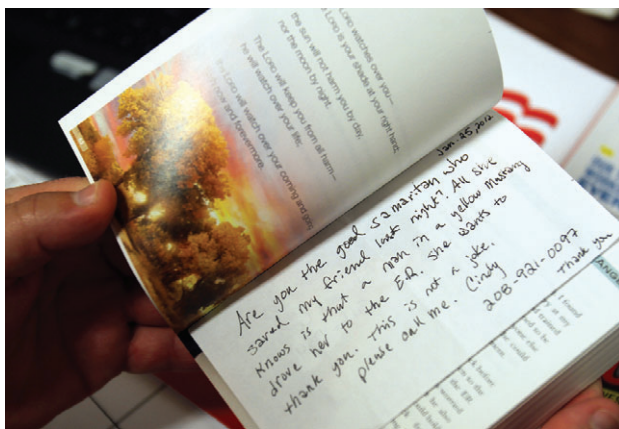 LORD watches over you—
LORD is your shade at your right hand;
the sun will not harm you by day,
nor the moon by night.
The LORD will keep you from all harm—
he will watch over your life;
LORD will watch over your coming and going
now and forevermore.
Jan 25, 2012
Are you the good samaritan who
saved my friend last night? All she
knows is that a man in a yellow Mustang
drove her to the E.R. She wants to
thank you. This is not a joke.
please call me. Cindy
208-921-0097
Thank you